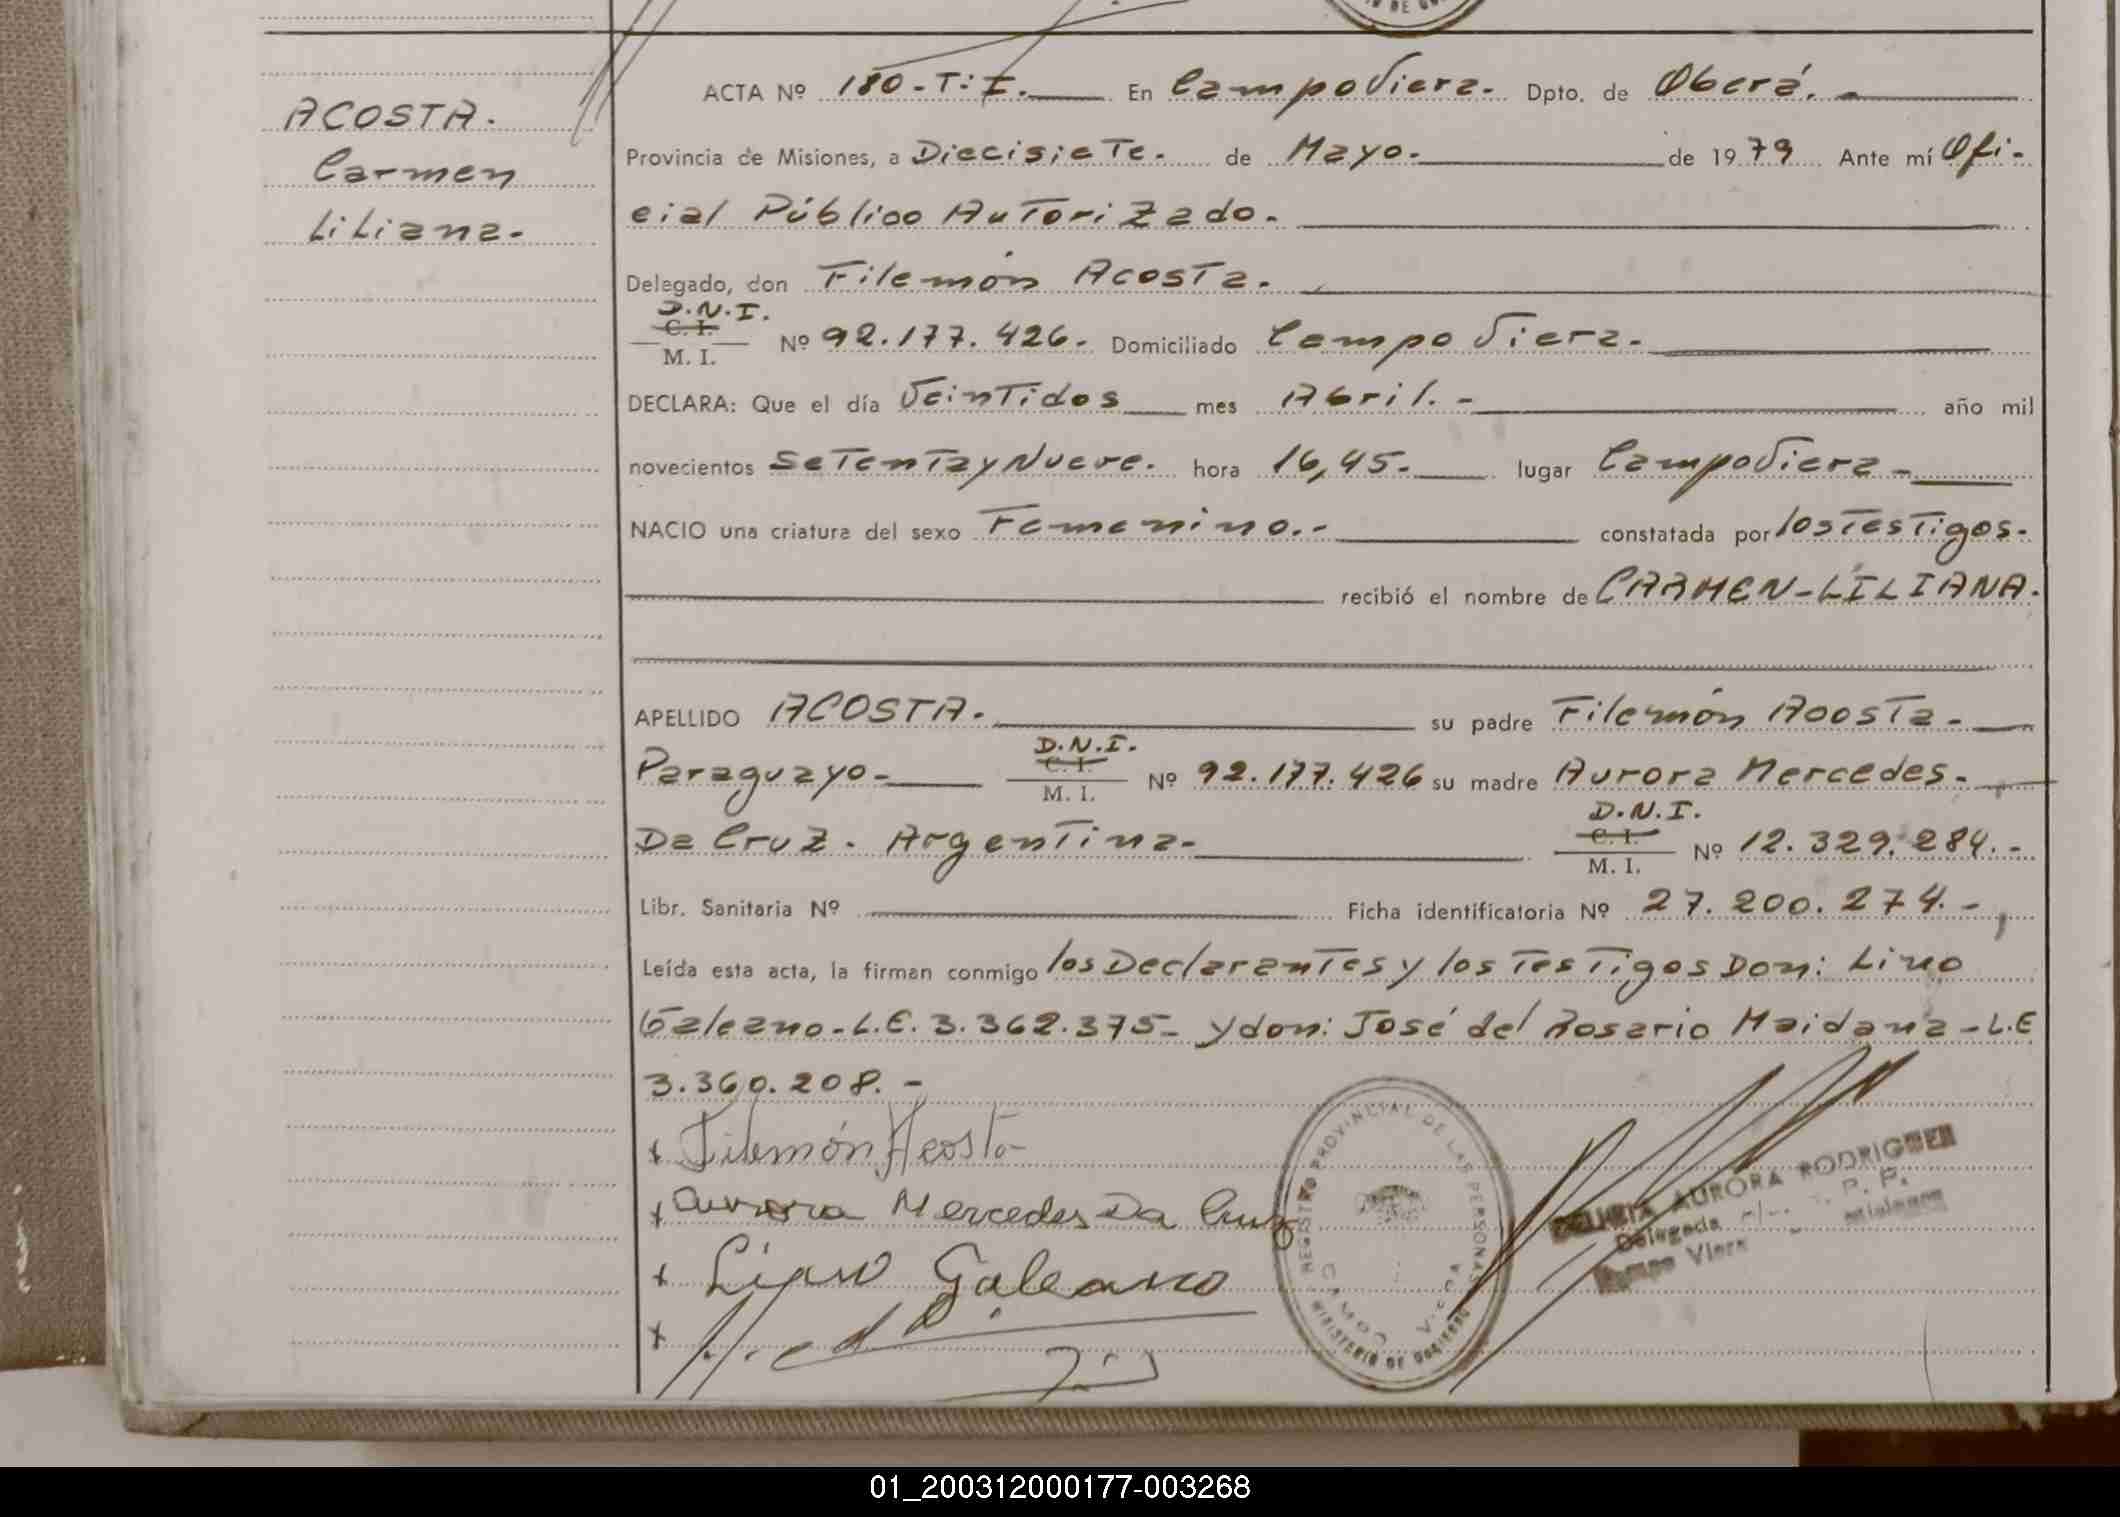 ACOSTA.
Carmen
Liliana.
ACTA Nº 180-T:I. En Campo Viera. Dpto. de Oberá.
Provincia de Misiones, a Diecisiete. de Mayo. de 1979 Ante mí Ofi-
cial Público Autorizado.
Delegado, don Filemón Acosta.
D.N.I.
C. I.
M. I. Nº 92.177.426. Domiciliado Campo Viera.
DECLARA: Que el día Veintidos mes Abril. año mil
novecientos Setenta y Nueve. hora 16,45. lugar Campo Viera
NACIO una criatura del sexo Femenino. constatada por los Testigos.
recibió el nombre de CARMEN-LILIANA.
APELLIDO ACOSTA. su padre Filemón Acosta
Paraguayo D.N.I. C. I. M. I. Nº 92.177.426 su madre Aurora Mercedes.
Da Cruz. Argentina D.N.I. C. I. M. I. Nº 12.329.284.
Libr. Sanitaria Nº Ficha identificatoria Nº 27.200.274.
Leída esta acta, la firman conmigo los Declarantes y los Testigos Don: Lino
Galeano-L.E. 3.362.375- y don: José del Rosario Maidana-L.E
3.360.208.-
x Filemón Acosta
x Aurora Mercedes Da Cruz
x Lino Galeano
x
REGISTRO PROVINCIAL DE LAS PERSONAS
CAMPO VIERA
MINISTERIO DE GOBIERNO
AURORA RODRIGUEZ
Delegada
Campo Viera Misiones
01_200312000177-003268